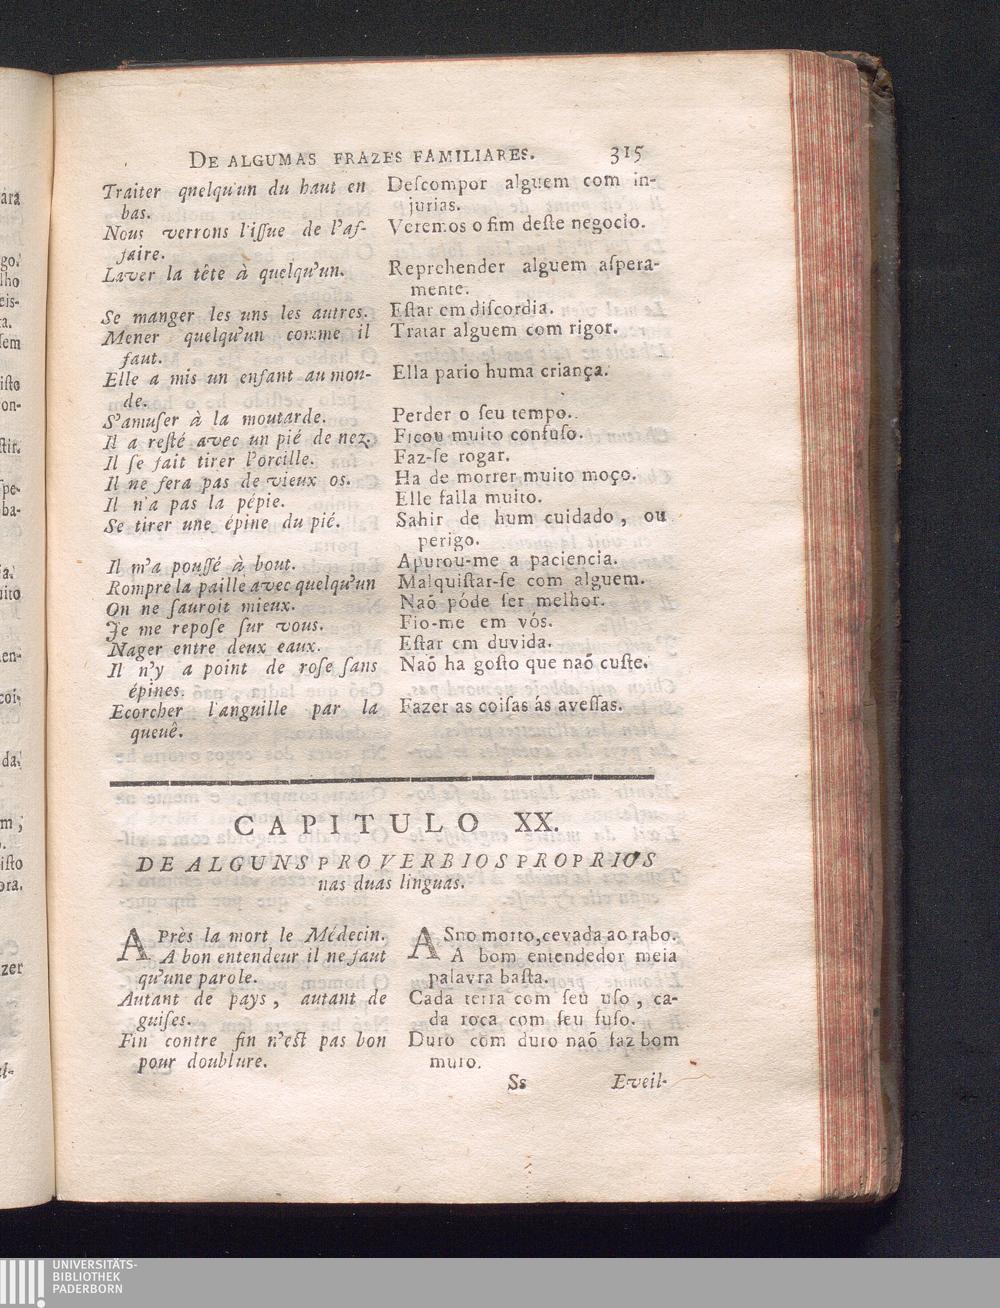 DE ALGUMAS FRAZES FAMILIARES. 315
Traiter quelqu'un du haut en
bas.
Nous verrons l'iſſue de l'af-
faire.
Laver la tête à quelqu'un.
Se manger les uns les autres.
Mener quelqu'un comme il
faut.
Elle a mis un enfant au mon-
de.
S'amuſer à la moutarde.
Il a reſté avec un pié de nez.
Il ſe fait tirer l'orcille.
Il ne ſera pas de vieux os.
Il n'a pas la pépie.
Se tirer une épine du pié.
Il m'a pouſſé à bout.
Rompre la paille avec quelqu'un
On ne ſauroit mieux.
Je me repoſe ſur vous.
Nager entre deux eaux.
Il n'y a point de roſe ſans
épines.
Ecorcher l'anguille par la
queuê.
Deſcompor alguem com in-
jurias.
Veremos o fim deſte negocio.
Reprehender alguem aſpera-
mente.
Eſtar em diſcordia.
Tratar alguem com rigor.
Ella pario huma criança.
Perder o ſeu tempo.
Ficou muito confuſo.
Faz-ſe rogar.
Ha de morrer muito moço.
Elle falla muito.
Sahir de hum cuidado, ou
perigo.
Apurou-me a paciencia.
Malquiſtar-ſe com alguem.
Naõ póde ſer melhor.
Fio-me em vós.
Eſtar em duvida.
Naõ ha goſto que naõ cuſte.
Fazer as coiſas ás aveſſas.
CAPITULO XX.
DE ALGUNS PROVERBIOS PROPRIOS
nas duas linguas.
APrès la mort le Médecin.
A bon entendeur il ne faut
qu'une parole.
Autant de pays, autant de
guiſes.
Fin contre fin n'eſt pas bon
pour doublure.
ASno morto, cevada ao rabo.
A bom entendedor meia
palavra baſta.
Cada terra com ſeu uſo, ca-
da roca com ſeu fuſo.
Duro com duro naõ faz bom
muro.
Ss Eveil-
UNIVERSITÄTS-
BIBLIOTHEK
PADERBORN